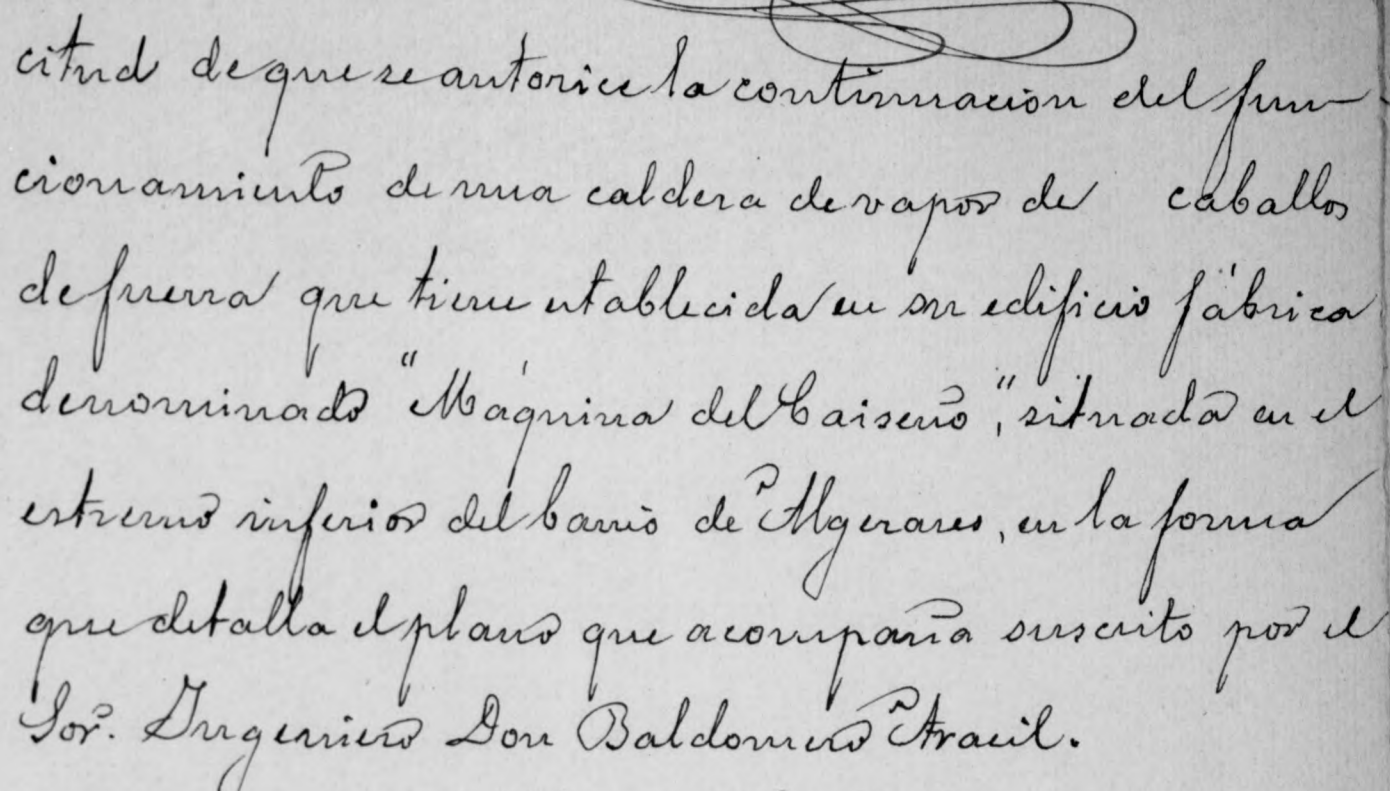 citud de que se autorice la continuacion del fun-
cionamiento de una caldera de vapor de caballos
de fuerza que tiene establecida en su edificio fábrica
denominado "Máquina del Caiseño", situada en el
estremo inferior del barrio de Algezares, en la forma
que detalla el plano que acompaña suscrito por el
Sor. Ingeniero Don Baldomero Aracil.